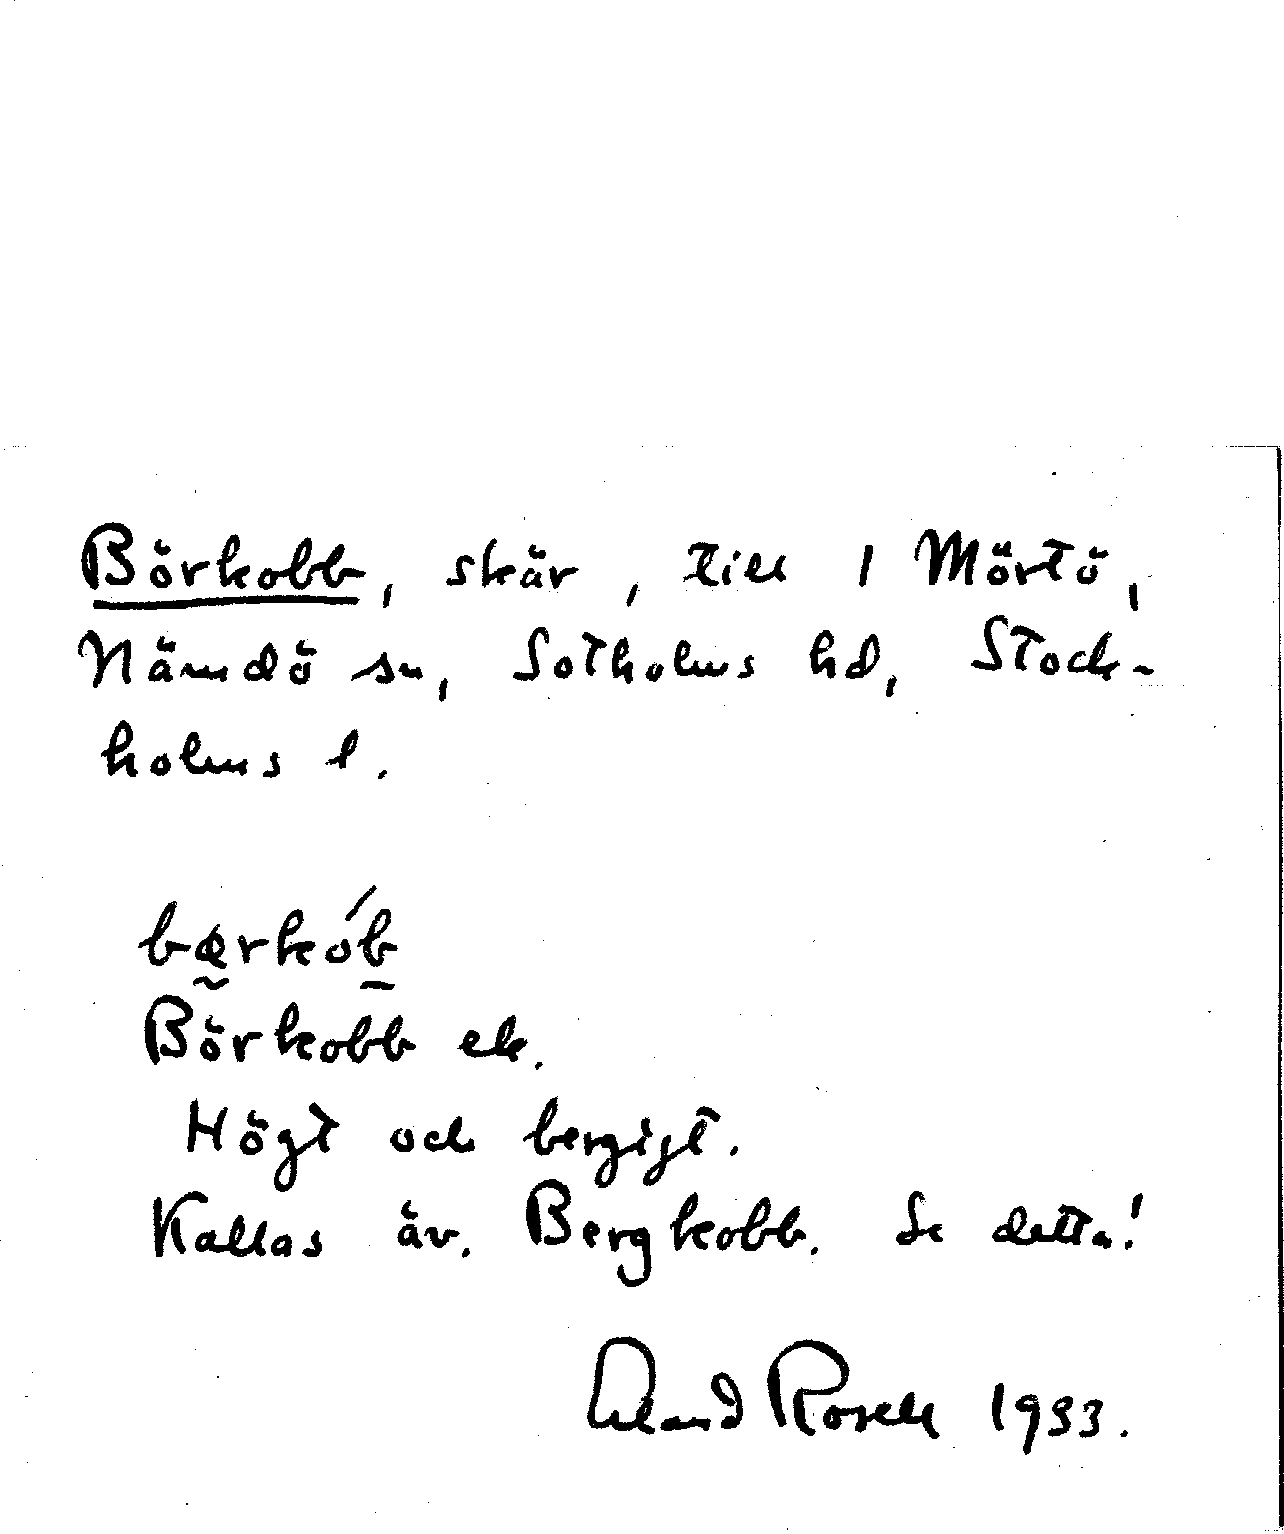 Börkobb, skär, till 1 Mörtö,
Nämdö sn, Sotholms hd, Stock-
holms l.
bœ̰rkób̲
Börkobb ek.
Högt och bergigt.
Kallas äv. Bergkobb. Se detta!
Erland Rosell 1933.